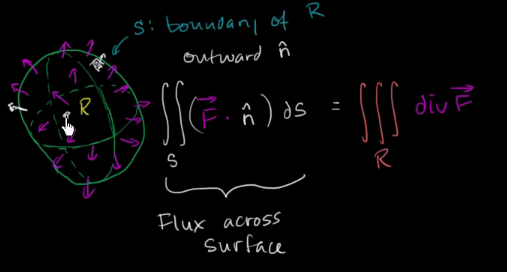 S: boundary of R
outward n̂
R
∬ (F⃗ · n̂) ds = ∭ div F⃗
S R
Flux across
surface